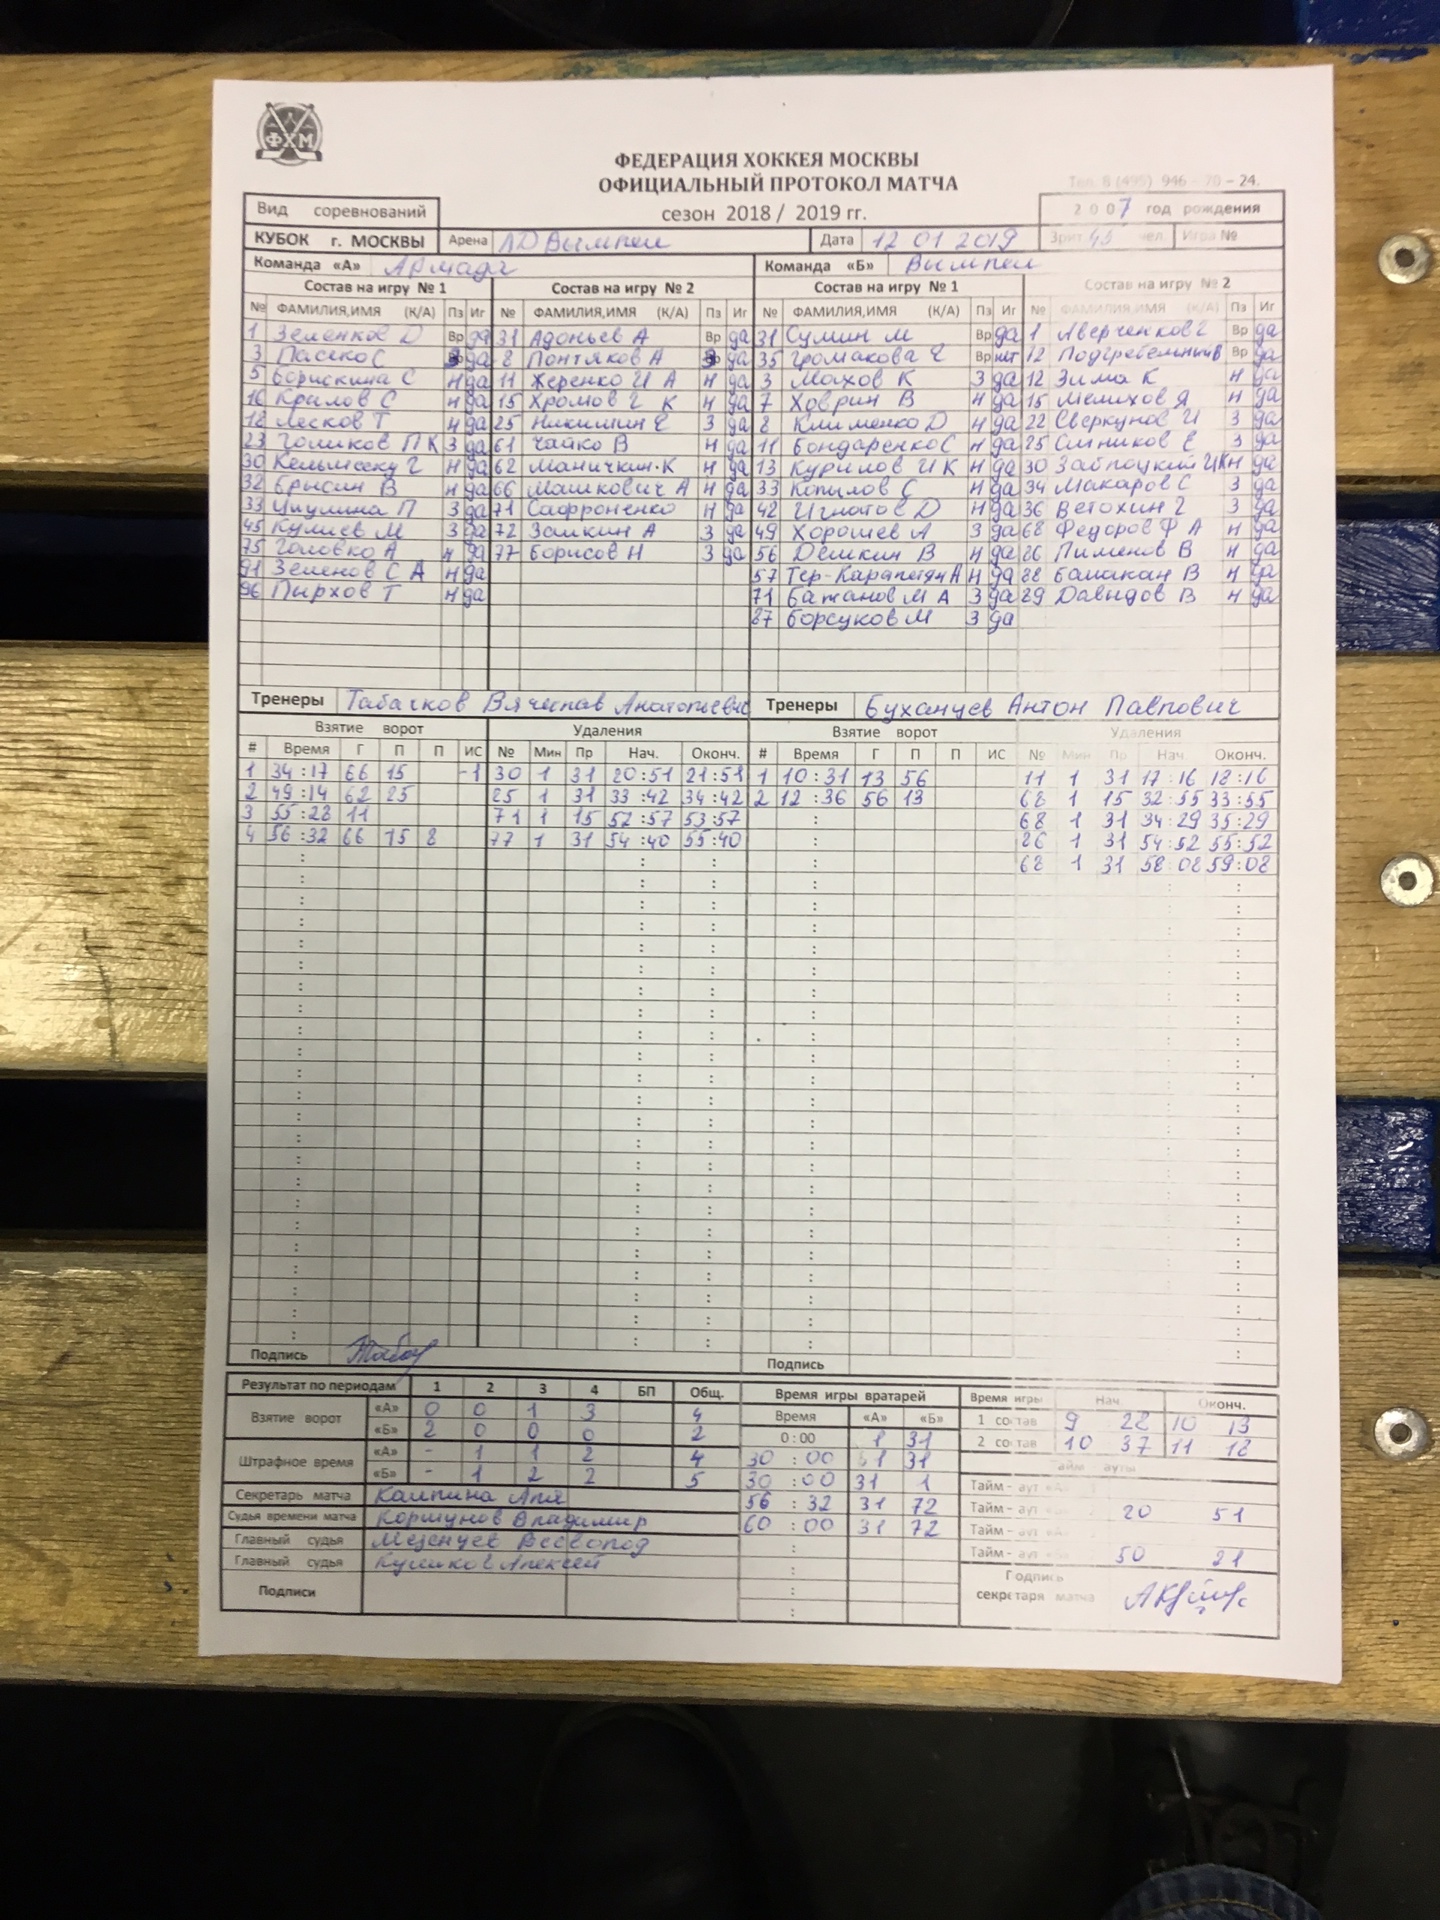 ФХМ
ФЕДЕРАЦИЯ ХОККЕЯ МОСКВЫ
ОФИЦИАЛЬНЫЙ ПРОТОКОЛ МАТЧА
Тел. 8 (495) 946 - 70 - 24.
Вид соревнований сезон 2018 / 2019 гг. 2007 год рождения
КУБОК г. МОСКВЫ Арена ЛД Вымпел Дата 12 01 2019 Зрит. 45 чел. Игра №
Команда «А» Армада Команда «Б» Вымпел
Состав на игру № 1 Состав на игру № 2 Состав на игру № 1 Состав на игру № 2
№ ФАМИЛИЯ,ИМЯ (К/А) Пз Иг № ФАМИЛИЯ,ИМЯ (К/А) Пз Иг № ФАМИЛИЯ,ИМЯ (К/А) Пз Иг № ФАМИЛИЯ,ИМЯ (К/А) Пз Иг
1 Зеленков D Вр да 31 Адоньев А Вр да 31 Сумин М Вр да 1 Аверченков Г Вр да
3 Пасеко С да 8 Понтяков А да 35 Громакова Е Вр нет 12 Подгребельный В Вр да
5 Борискина С Н да 11 Жеренко И А Н да 3 Махов К З да 12 Зима К Н да
16 Крилов С Н да 15 Хромов Г К Н да 7 Ховрин В Н да 15 Мемихов Я Н да
18 Лесков Т Н да 25 Никишин Е З да 8 Клименко D Н да 22 Сверкунов И З да
23 Голиков П К З да 61 Чайко В Н да 11 Бондаренко С Н да 25 Симников Е З да
30 Кельмеску Г Н да 62 Маничкин К Н да 13 Курилов И К Н да 30 Заблоцкий И К Н да
32 Брысин В Н да 66 Машкович А Н да 33 Копылов С Н да 34 Макаров С З да
33 П З да 71 Сафроненко Н да 42 Игнатов D Н да 36 Ветохин Г З да
45 Кулиев М З да 72 Заикин А З да 49 Хорошев А З да 68 Федоров Ф А Н да
75 Головко А Н да 77 Борисов Н З да 56 Демкин В Н да 86 Пименов В Н да
91 Зеленов С А Н да 57 Тер-Карапетян А Н да 88 Балакан В Н да
96 Пырхов Т Н да 71 Батанов М А З да 89 Давыдов В Н да
87 Борсуков М З да
Тренеры Табачков Вячеслав Анатольевич Тренеры Буханцев Антон Павлович
Взятие ворот Удаления Взятие ворот Удаления
# Время Г П П ИС № Мин Пр Нач. Оконч. # Время Г П П ИС № Мин Пр Нач. Оконч.
1 34:17 66 15 -1 30 1 31 20:51 21:51 1 10:31 13 56 11 1 31 17:16 18:16
2 49:14 62 25 25 1 31 33:42 34:42 2 12:36 56 13 68 1 15 32:55 33:55
3 55:28 11 71 1 15 52:57 53:57 68 1 31 34:29 35:29
4 56:32 66 15 8 77 1 31 54:40 55:40 86 1 31 54:52 55:52
68 1 31 58:08 59:08
Подпись Подпись
Результат по периодам 1 2 3 4 БП Общ. Время игры вратарей Время игры Нач. Оконч.
Взятие ворот «А» 0 0 1 3 4 Время «А» «Б» 1 состав 9 28 10 13
«Б» 2 0 0 0 2 0:00 1 31 2 состав 10 37 11 18
Штрафное время «А» - 1 1 2 4 30:00 31 31 Тайм ауты
«Б» - 1 2 2 5 30:00 31 1 Тайм-аут «А»
Секретарь матча Калпина Аня 56:32 31 72 Тайм-аут 20 51
Судья времени матча Коршунов Владимир 60:00 31 72 Тайм-аут «А»
Главный судья Мезенцев Всеволод Тайм-аут 50 21
Главный судья Куликов Алексей
Подписи Подпись секретаря матча